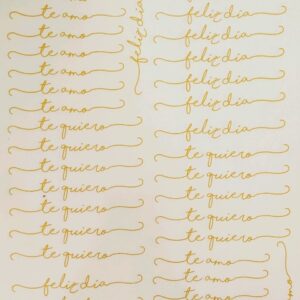 te amo
te amo
te amo
te amo
te amo
te amo
te quiero
te quiero
te quiero
te quiero
te quiero
te quiero
te quiero
feliz dia
te quiero
feliz dia
feliz dia
feliz dia
feliz dia
feliz dia
feliz dia
feliz dia
te quiero
te quiero
te quiero
te quiero
te quiero
te amo
te amo
te amo